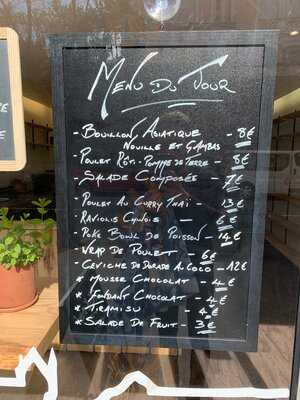 Menu Du Jour
- Bouillon Asiatique - 8€
Nouille et Gambas
- Poulet Rôti - Pomme de Terre - 8€
- Salade Composée - 7€
- Poulet au Curry Thaï - 13€
- Raviolis Chinois - 6€
- Poke Bowl de Poisson - 14€
- Wrap de Poulet - 6€
- Ceviche de Dorade Au Coco - 12€
* Mousse Chocolat - 4€
* Fondant Chocolat - 4€
* Tiramisu - 4€
* Salade de Fruit - 3€